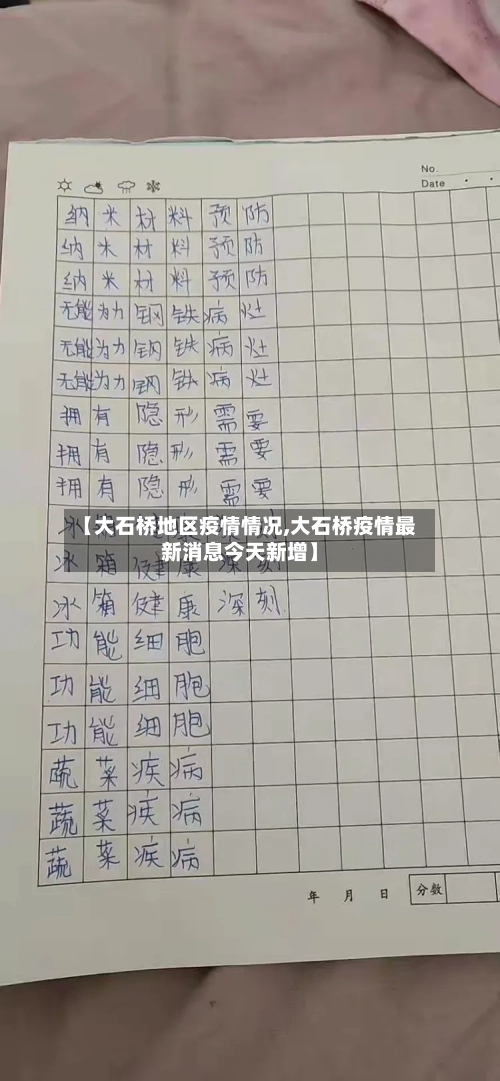 No.
Date
纳米材料预防
纳米材料预防
纳米材料预防
无能为力钢铁病灶
无能为力钢铁病灶
无能为力钢铁病灶
拥有隐形需要
拥有隐形需要
拥有隐形需要
【大石桥地区疫情情况,大石桥疫情最
新消息今天新增】
冰箱健康深刻
冰箱健康深刻
功能细胞
功能细胞
功能细胞
蔬菜疾病
蔬菜疾病
蔬菜疾病
年 月 日 分数